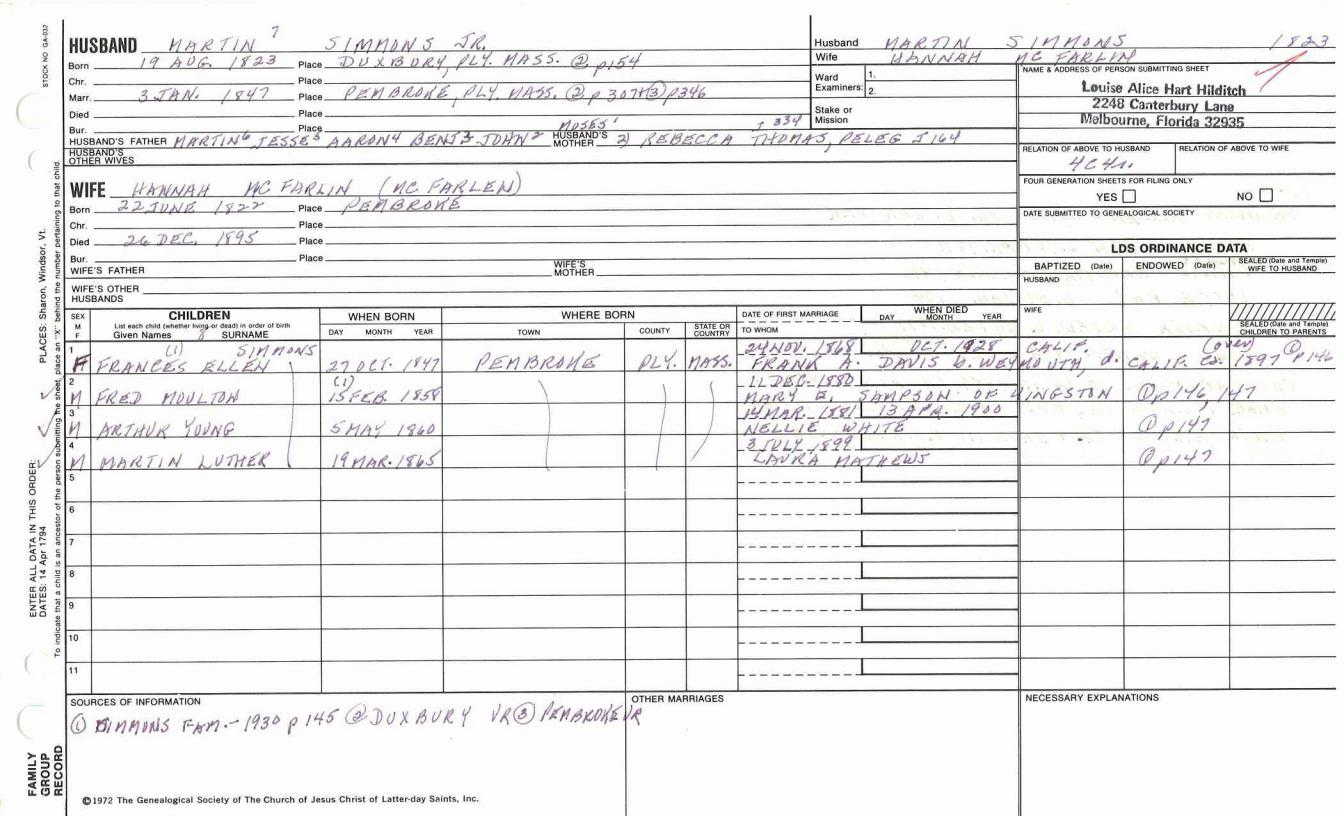 STOCK NO GA-032
HUSBAND MARTIN 7 SIMMONS JR.
Born 19 AUG. 1823 Place DUXBURY, PLY. MASS. ② p154
Chr. Place
Marr. 3 JAN. 1847 Place PEMBROKE, PLY. MASS. ② p 307+③ p346
Died Place
Bur. Place MOSES' I 334
HUSBAND'S FATHER MARTIN⁶ JESSE⁵ AARON⁴ BENJ³ JOHN² HUSBAND'S MOTHER 2) REBECCA THOMAS, PELEG I 164
HUSBAND'S OTHER WIVES
Husband MARTIN SIMMONS 1823
Wife HANNAH MC FARLIN
Ward Examiners: 1.
2.
Stake or Mission
NAME & ADDRESS OF PERSON SUBMITTING SHEET
Louise Alice Hart Hilditch
2248 Canterbury Lane
Melbourne, Florida 32935
RELATION OF ABOVE TO HUSBAND RELATION OF ABOVE TO WIFE
4C4r.
FOUR GENERATION SHEETS FOR FILING ONLY
YES NO
DATE SUBMITTED TO GENEALOGICAL SOCIETY
WIFE HANNAH MC FARLIN (MC FARLEN)
Born 22 JUNE 1822 Place PEMBROKE
Chr. Place
Died 26 DEC. 1895 Place
Bur. Place
WIFE'S FATHER WIFE'S MOTHER
WIFE'S OTHER HUSBANDS
LDS ORDINANCE DATA
BAPTIZED (Date) ENDOWED (Date) SEALED (Date and Temple) WIFE TO HUSBAND
HUSBAND
WIFE
SEALED (Date and Temple) CHILDREN TO PARENTS
SEX M F CHILDREN WHEN BORN WHERE BORN DATE OF FIRST MARRIAGE WHEN DIED
List each child (whether living or dead) in order of birth
Given Names 8 SURNAME DAY MONTH YEAR TOWN COUNTY STATE OR COUNTRY TO WHOM DAY MONTH YEAR
1 (1) SIMMONS 24 NOV. 1868 OCT. 1928 CALIF. (over) ①
F FRANCES ELLEN 27 OCT. 1847 PEMBROKE PLY. MASS. FRANK A. DAVIS b. WEYMOUTH, d. CALIF. Co. 1897 p146
2 (1) 11 DEC. 1880
M FRED MOULTON 15 FEB. 1858 MARY E. SAMPSON OF KINGSTON ① p146, 147
3 14 MAR. 1881 13 APR. 1900
M ARTHUR YOUNG 5 MAY 1860 NELLIE WHITE ① p147
4 3 JULY 1899
M MARTIN LUTHER 19 MAR. 1865 LAURA MATHEWS ① p147
5
6
7
8
9
10
11
SOURCES OF INFORMATION OTHER MARRIAGES NECESSARY EXPLANATIONS
① SIMMONS FAM. - 1930 p 145 ② DUXBURY VR ③ PEMBROKE VR
©1972 The Genealogical Society of The Church of Jesus Christ of Latter-day Saints, Inc.
FAMILY
GROUP
RECORD
ENTER ALL DATA IN THIS ORDER:
DATES: 14 Apr 1794
PLACES: Sharon, Windsor, Vt.
To indicate that a child is an ancestor of the person submitting the sheet, place an "X" behind the number pertaining to that child.